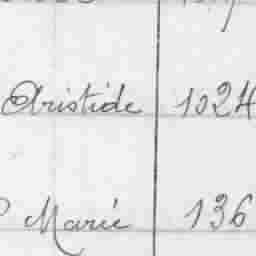 Aristide 1024
Marie 136